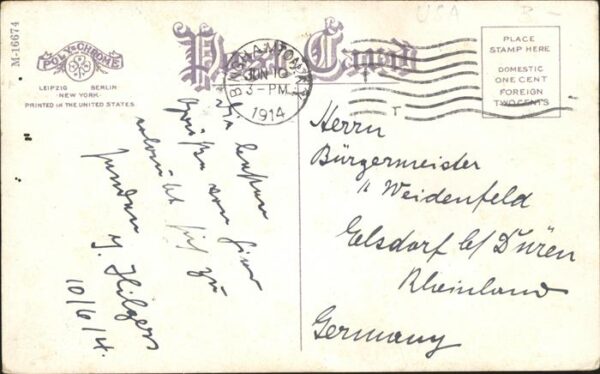 M-16674
POLY-CHROME
LEIPZIG BERLIN
NEW YORK
PRINTED IN THE UNITED STATES
Post Card
BINGHAMTON, N.Y.
JUN 10
3-PM
1914
USA
PLACE
STAMP HERE
DOMESTIC
ONE CENT
FOREIGN
TWO CENTS
Die besten
Grüße von hier
erlaubt sich zu
senden
J. Hilgers
10/6/14.
Herrn
Bürgermeister
" Weidenfeld
Elsdorf b/ Düren
Rheinland
Germany